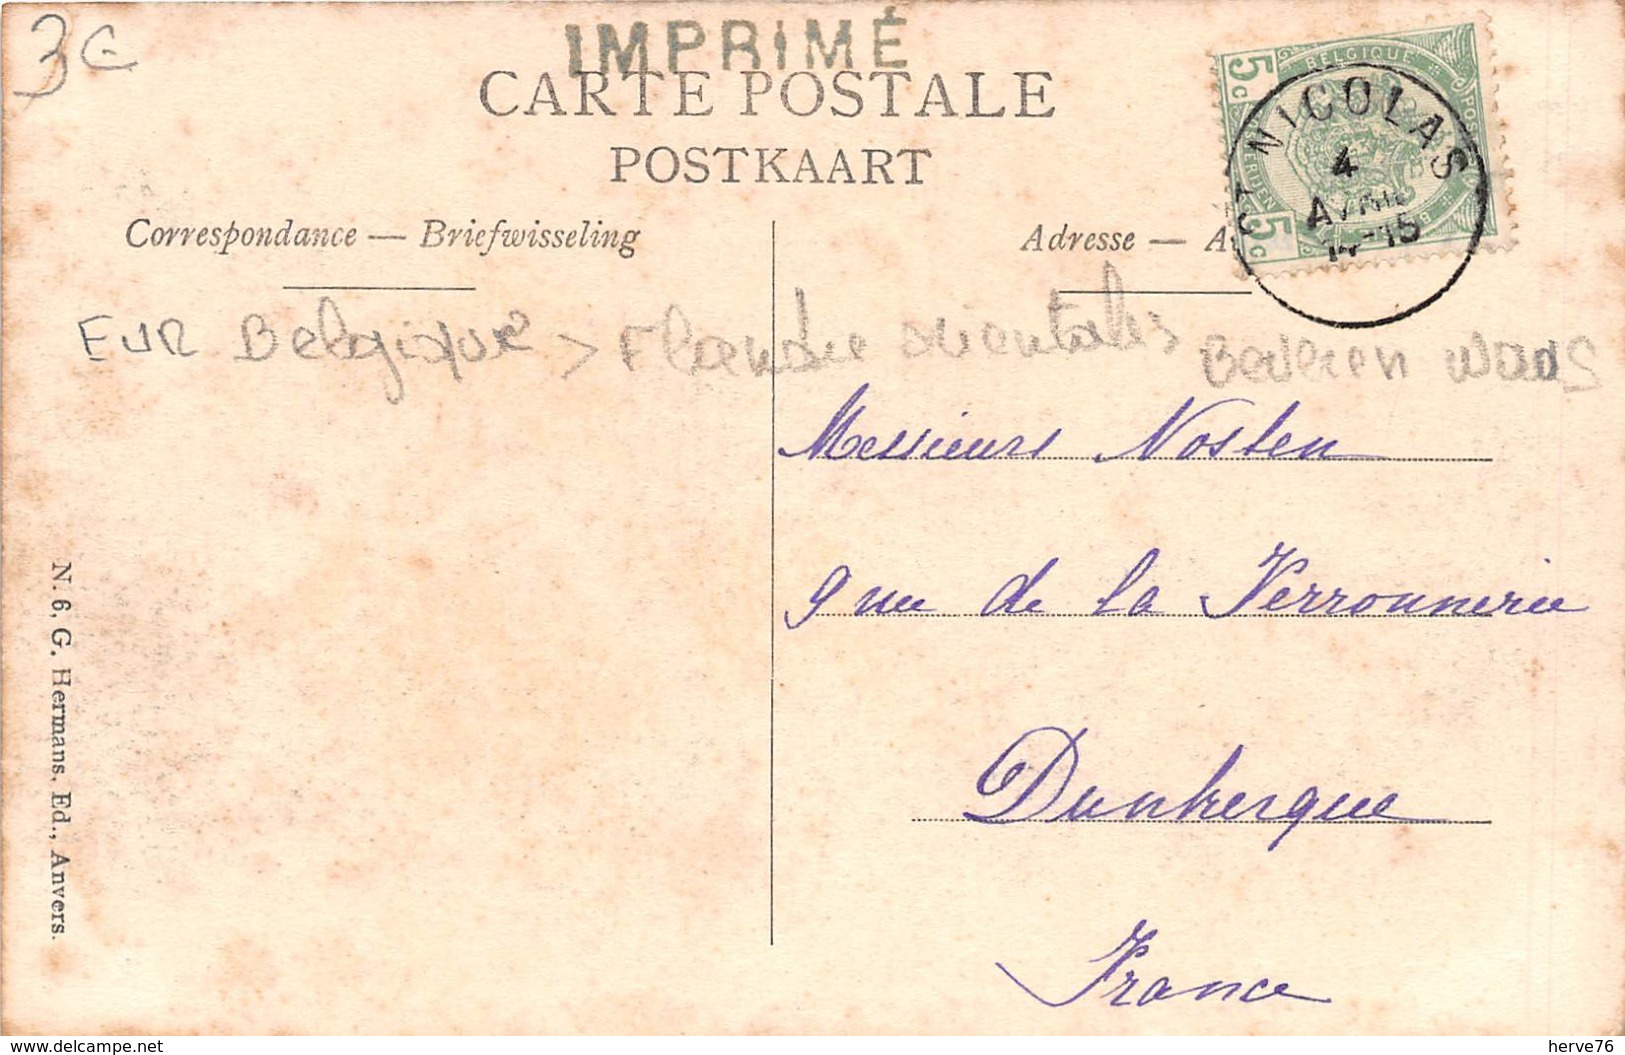 3€
IMPRIMÉ
CARTE POSTALE
POSTKAART
Correspondance — Briefwisseling
Adresse — A
BELGIQUE
5c
5c
ST NICOLAS
4
AVRIL
14-15
EUR Belgique > Flandre orientales Beveren Waas
Messieurs Nosten
9 rue de la Ferronnerie
Dunkerque
France
N. 6, G. Hermans, Ed., Anvers.
delcampe.net
herve76